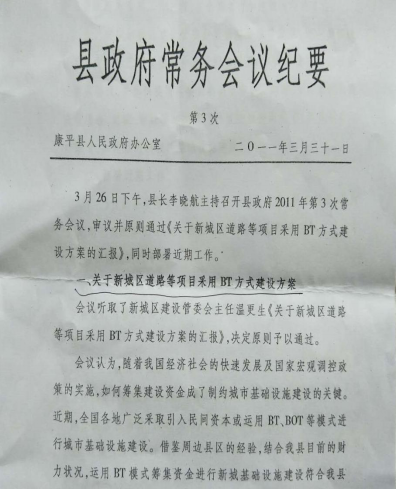 县政府常务会议纪要
第3次
康平县人民政府办公室 二〇一一年三月三十一日
3月26日下午,县长李晓航主持召开县政府2011年第3次常
务会议,审议并原则通过《关于新城区道路等项目采用BT方式建
设方案的汇报》,同时部署近期工作。
一、关于新城区道路等项目采用BT方式建设方案
会议听取了新城区建设管委会主任温更生《关于新城区道路
等项目采用BT方式建设方案的汇报》,决定原则予以通过。
会议认为,随着我国经济社会的快速发展及国家宏观调控政
策的实施,如何筹集建设资金成了制约城市基础设施建设的关键。
近期,全国各地广泛采取引入民间资本或运用BT、BOT等模式进
行城市基础设施建设。借鉴周边县区的经验,结合我县目前的财
力状况,运用BT模式筹集资金进行新城基础设施建设符合我县